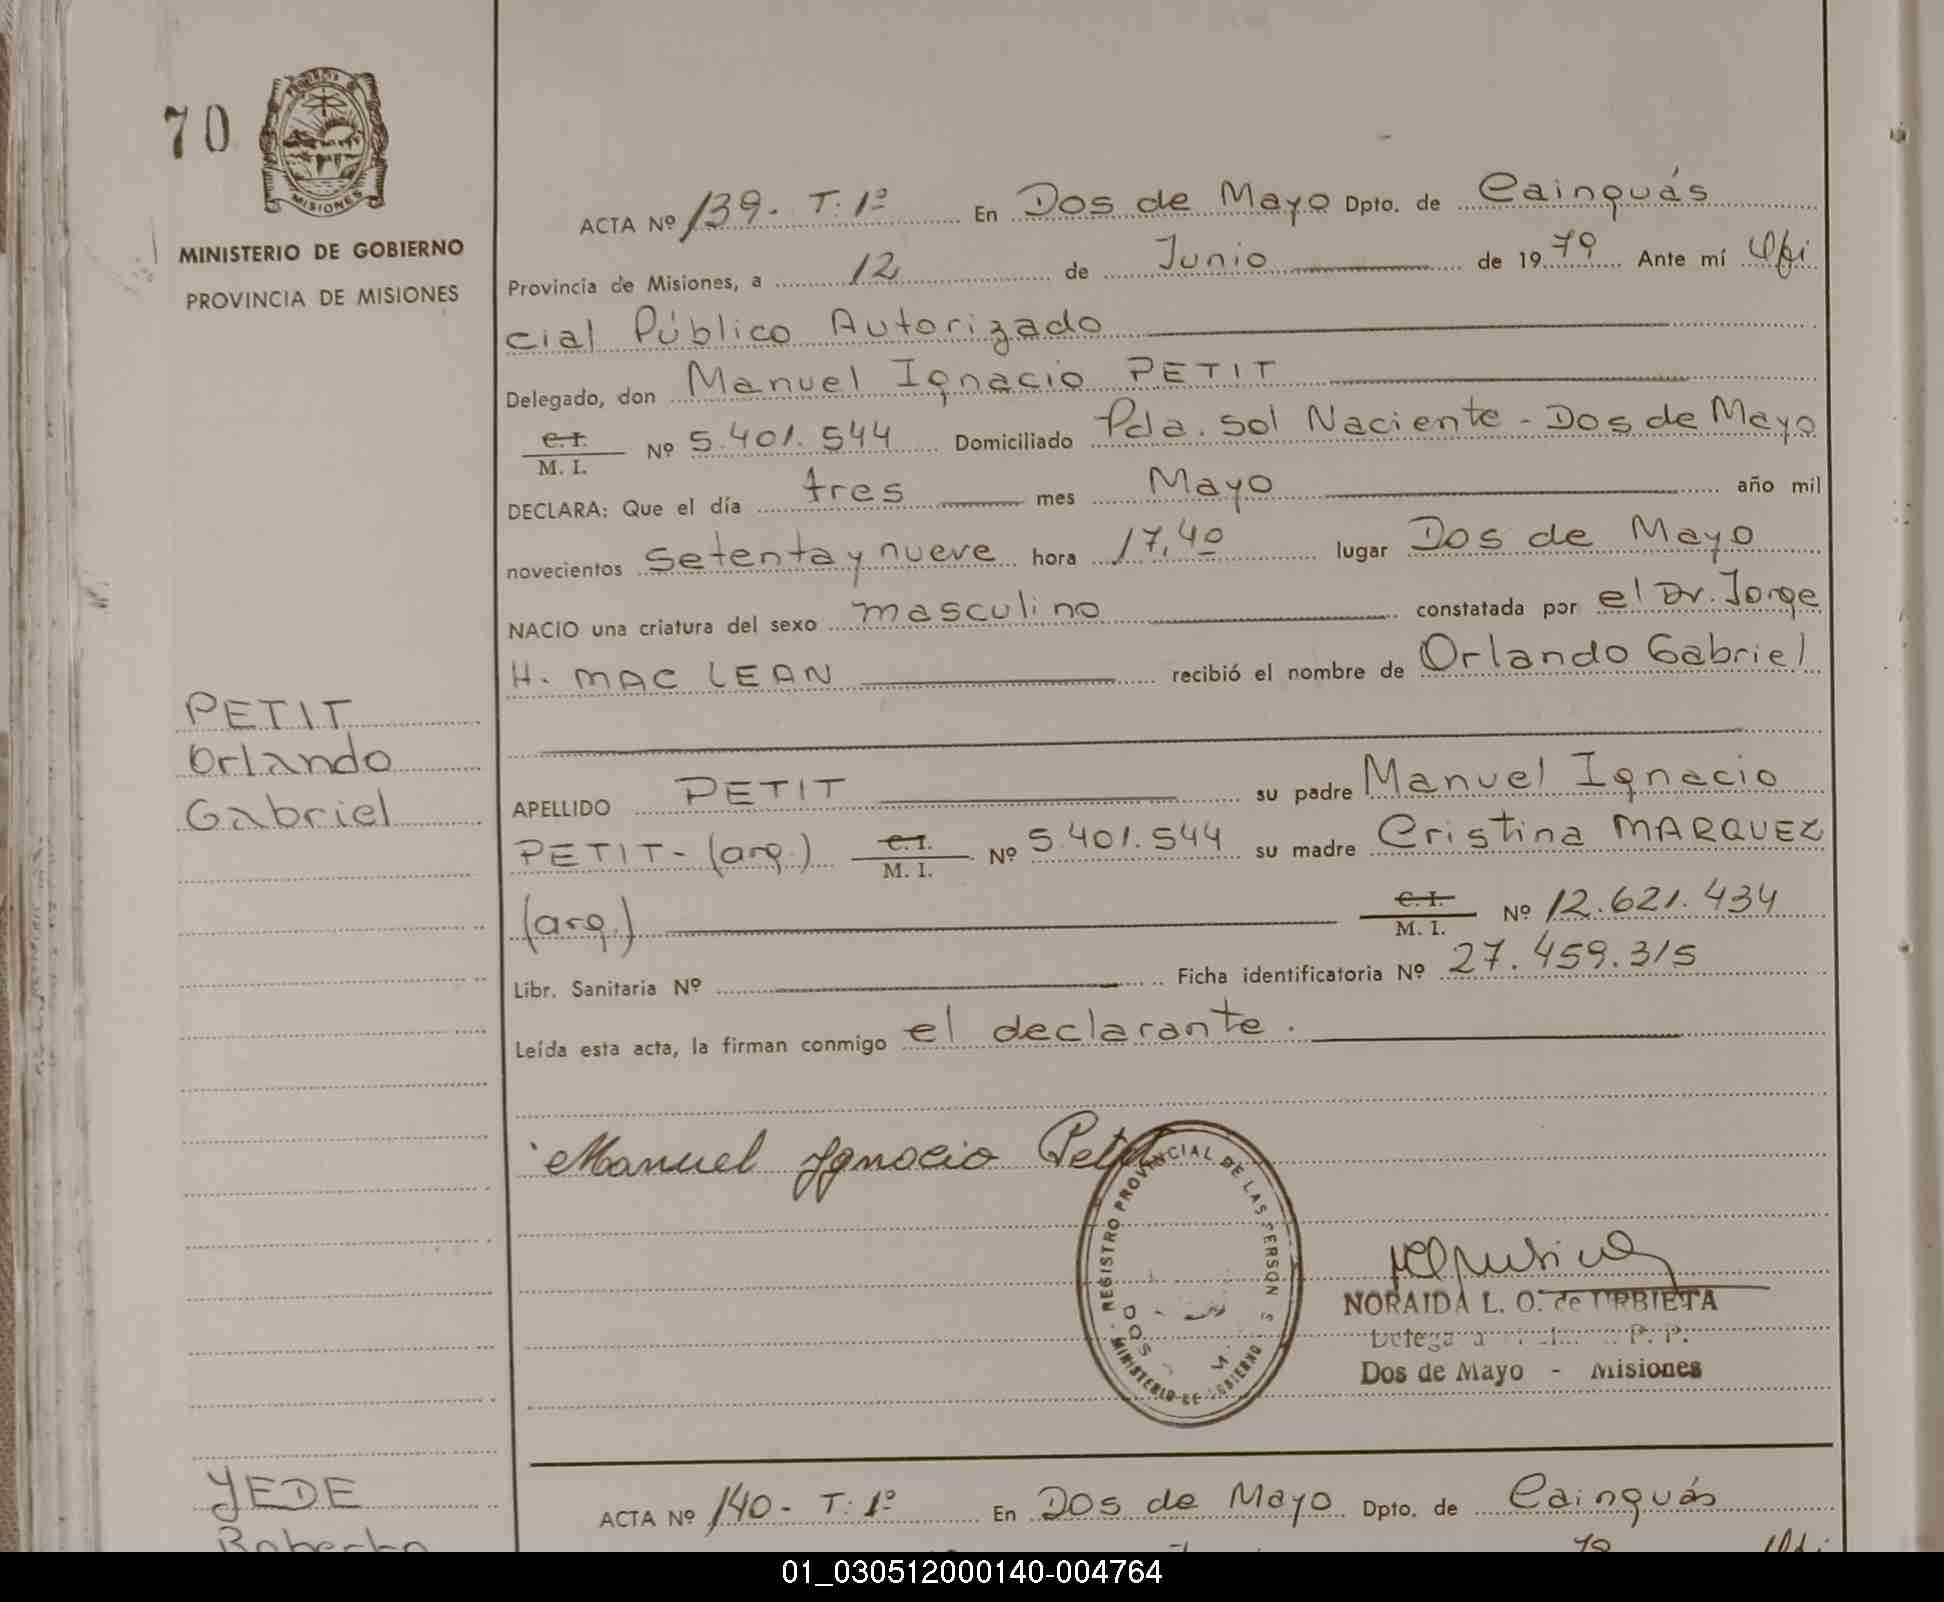 70
MISIONES
MINISTERIO DE GOBIERNO
PROVINCIA DE MISIONES
ACTA Nº 139- T: 1º En Dos de Mayo Dpto. de Cainguás
Provincia de Misiones, a 12 de Junio de 1979 Ante mí Ofi
cial Público Autorizado
Delegado, don Manuel Ignacio PETIT
C.I.
M. I. Nº 5.401.544 Domiciliado Pda. Sol Naciente - Dos de Mayo
DECLARA: Que el día tres mes Mayo año mil
novecientos setenta y nueve hora 17,40 lugar Dos de Mayo
NACIO una criatura del sexo masculino constatada por el Dr. Jorge
H. MAC LEAN recibió el nombre de Orlando Gabriel
PETIT
Orlando
Gabriel
APELLIDO PETIT su padre Manuel Ignacio
PETIT- (arg.) C.I. M. I. Nº 5.401.544 su madre Cristina MARQUEZ
(arg.) C.I. M. I. Nº 12.621.434
Libr. Sanitaria Nº Ficha identificatoria Nº 27.459.315
Leída esta acta, la firman conmigo el declarante.
Manuel Ignacio Petit
REGISTRO PROVINCIAL DE LAS PERSON S
DOS M.
MINISTERIO DE GOBIERNO
NORAIDA L. O. de URBIETA
P. P.
Dos de Mayo - Misiones
YEDE
Roberto
ACTA Nº 140- T: 1º En Dos de Mayo Dpto. de Cainguás
79 Ofi
01_030512000140-004764